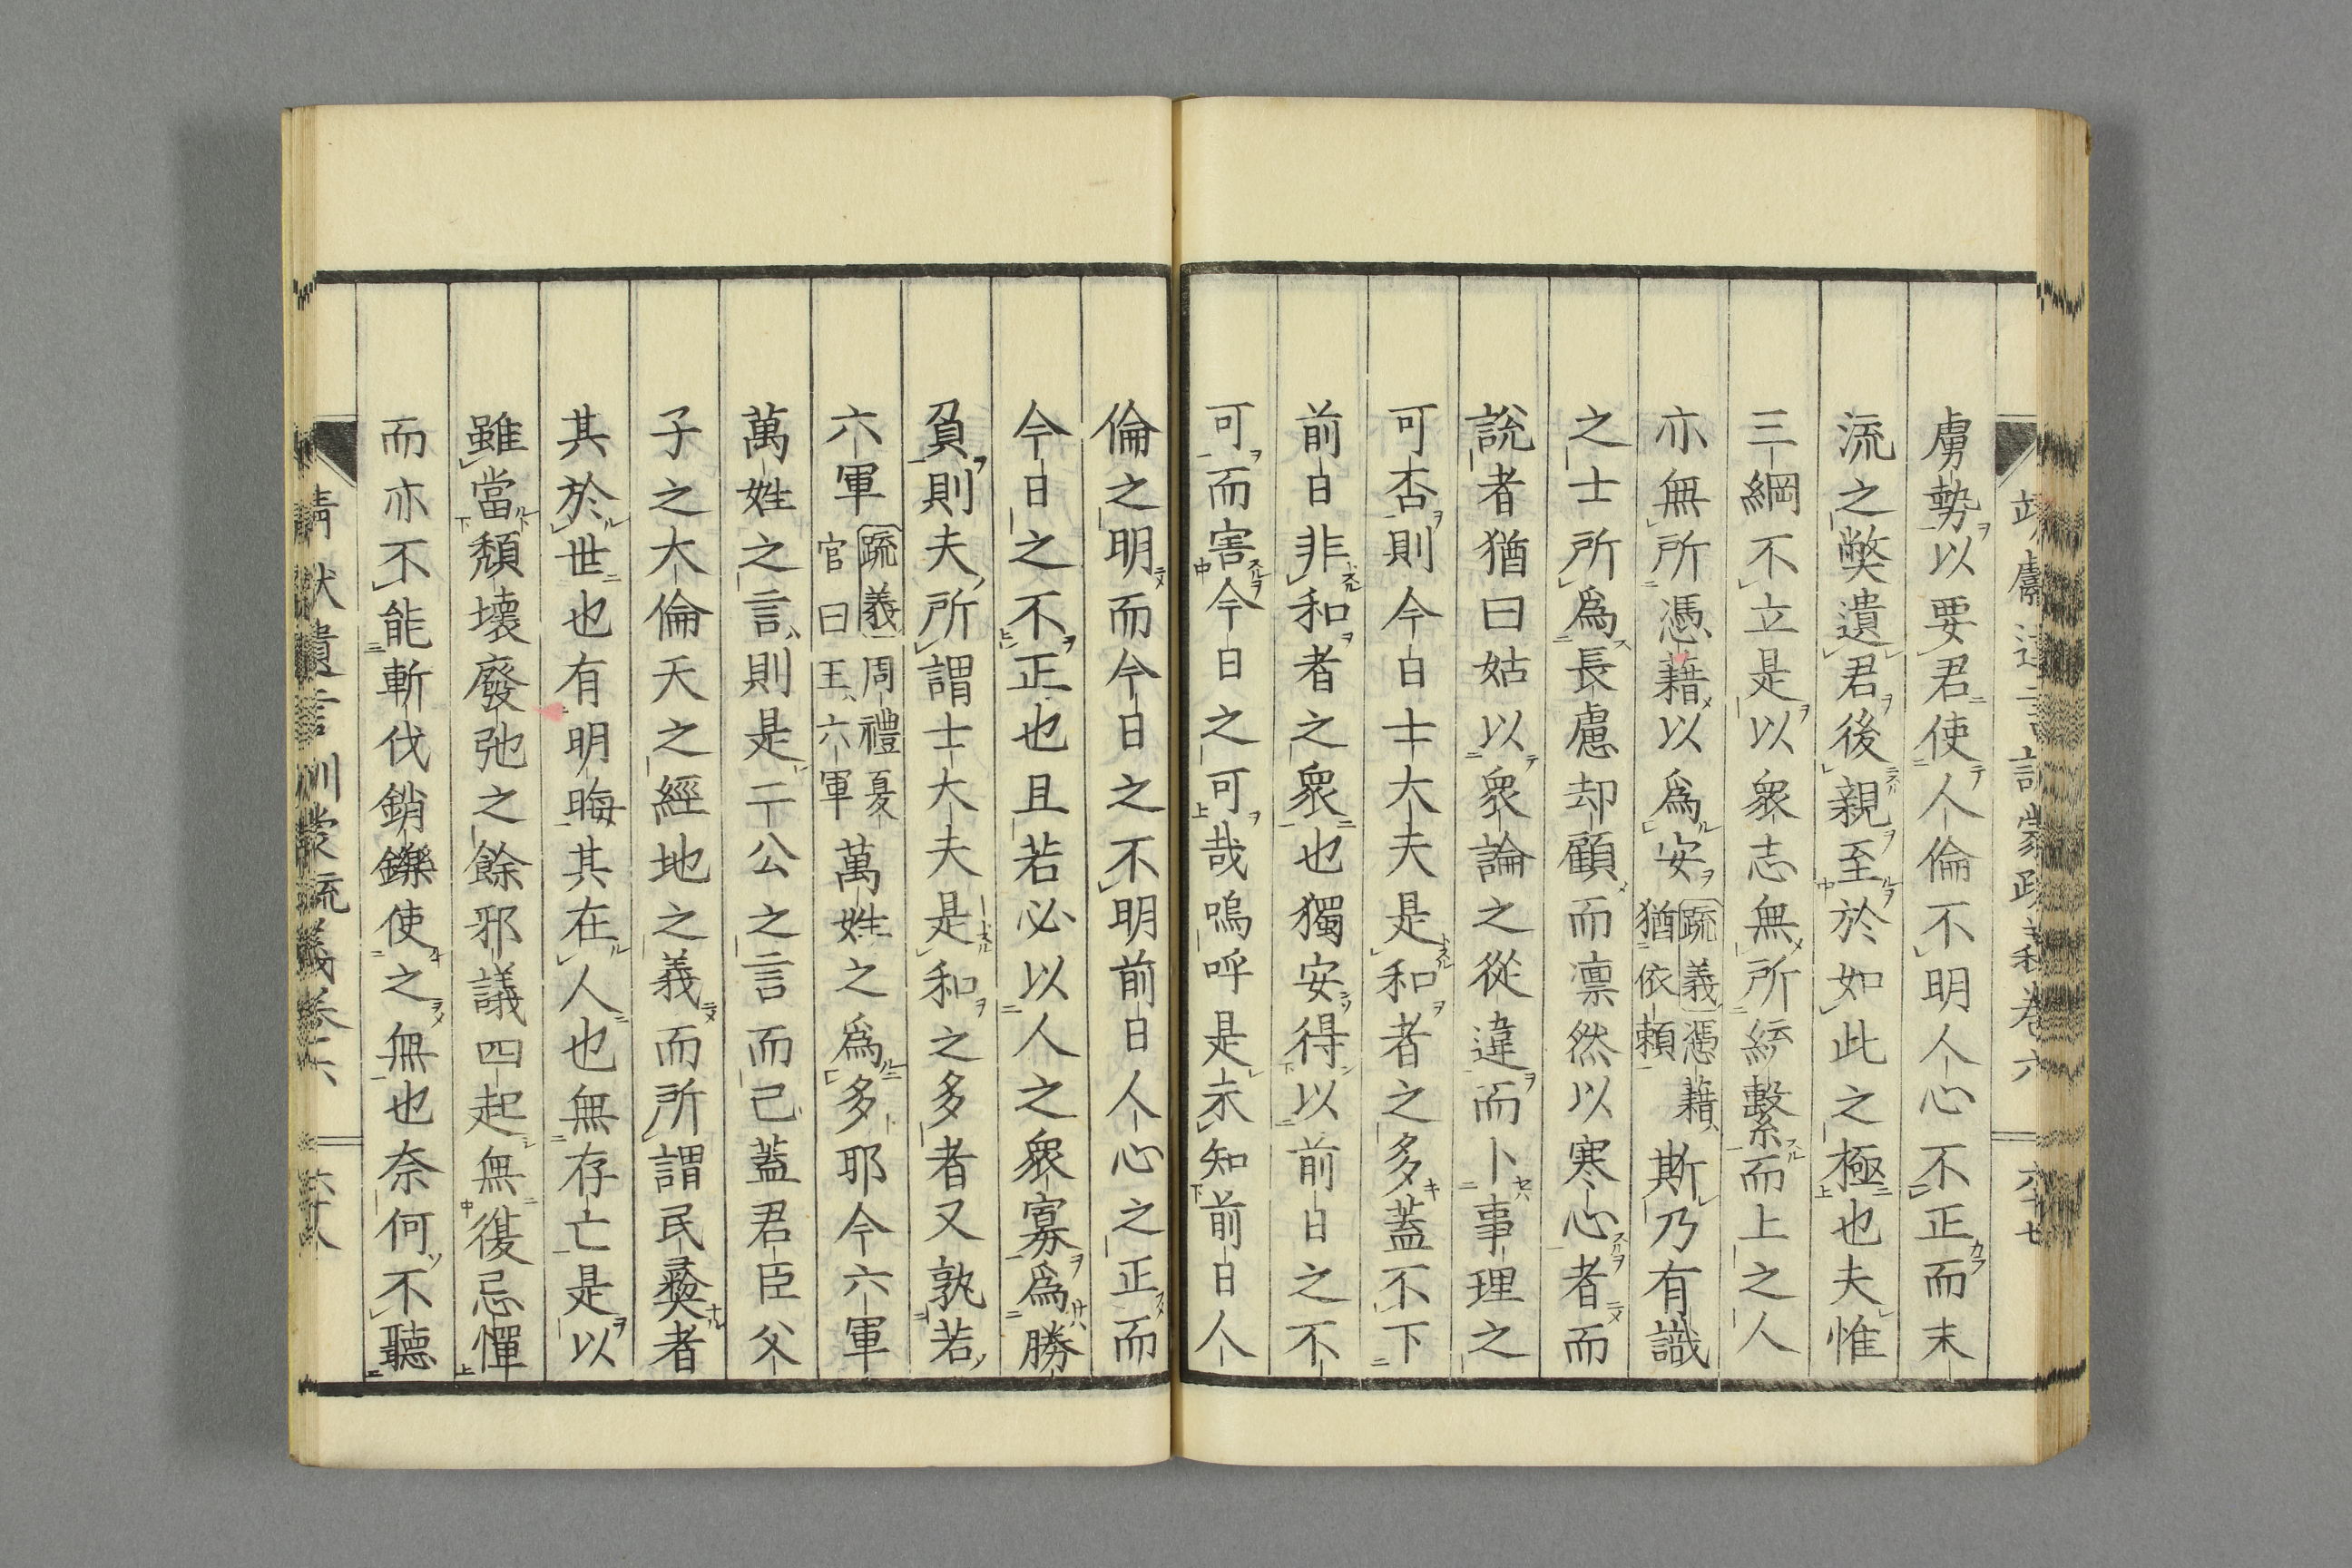 虜勢以要君使人倫不明人心不正而末
流之弊遺君後親至於如此之極也夫惟
三綱不立是以衆志無所統繫而上之人
亦無所憑藉以爲安疏義憑藉猶依賴斯乃有識
之士所爲長慮却顧而凛然以寒心者而
說者猶曰姑以衆論之從違而卜事理之
可否則今日士大夫是和者之多蓋不下
前日非和者之衆也獨安得以前日之不
可而害今日之可哉嗚呼是未知前日人
倫之明而今日之不明前日人心之正而
今日之不正也且若必以人之衆寡爲勝
負則夫所謂士大夫是和之多者又孰若
六軍疏義周禮夏官曰王六軍萬姓之爲多耶今六軍
萬姓之言則是二公之言而已蓋君臣父
子之大倫天之經地之義而所謂民彝者
其於世也有明晦其在人也無存亡是以
雖當頽壞廢弛之餘邪議四起無復忌憚
而亦不能斬伐銷鑠使之無也奈何不聽